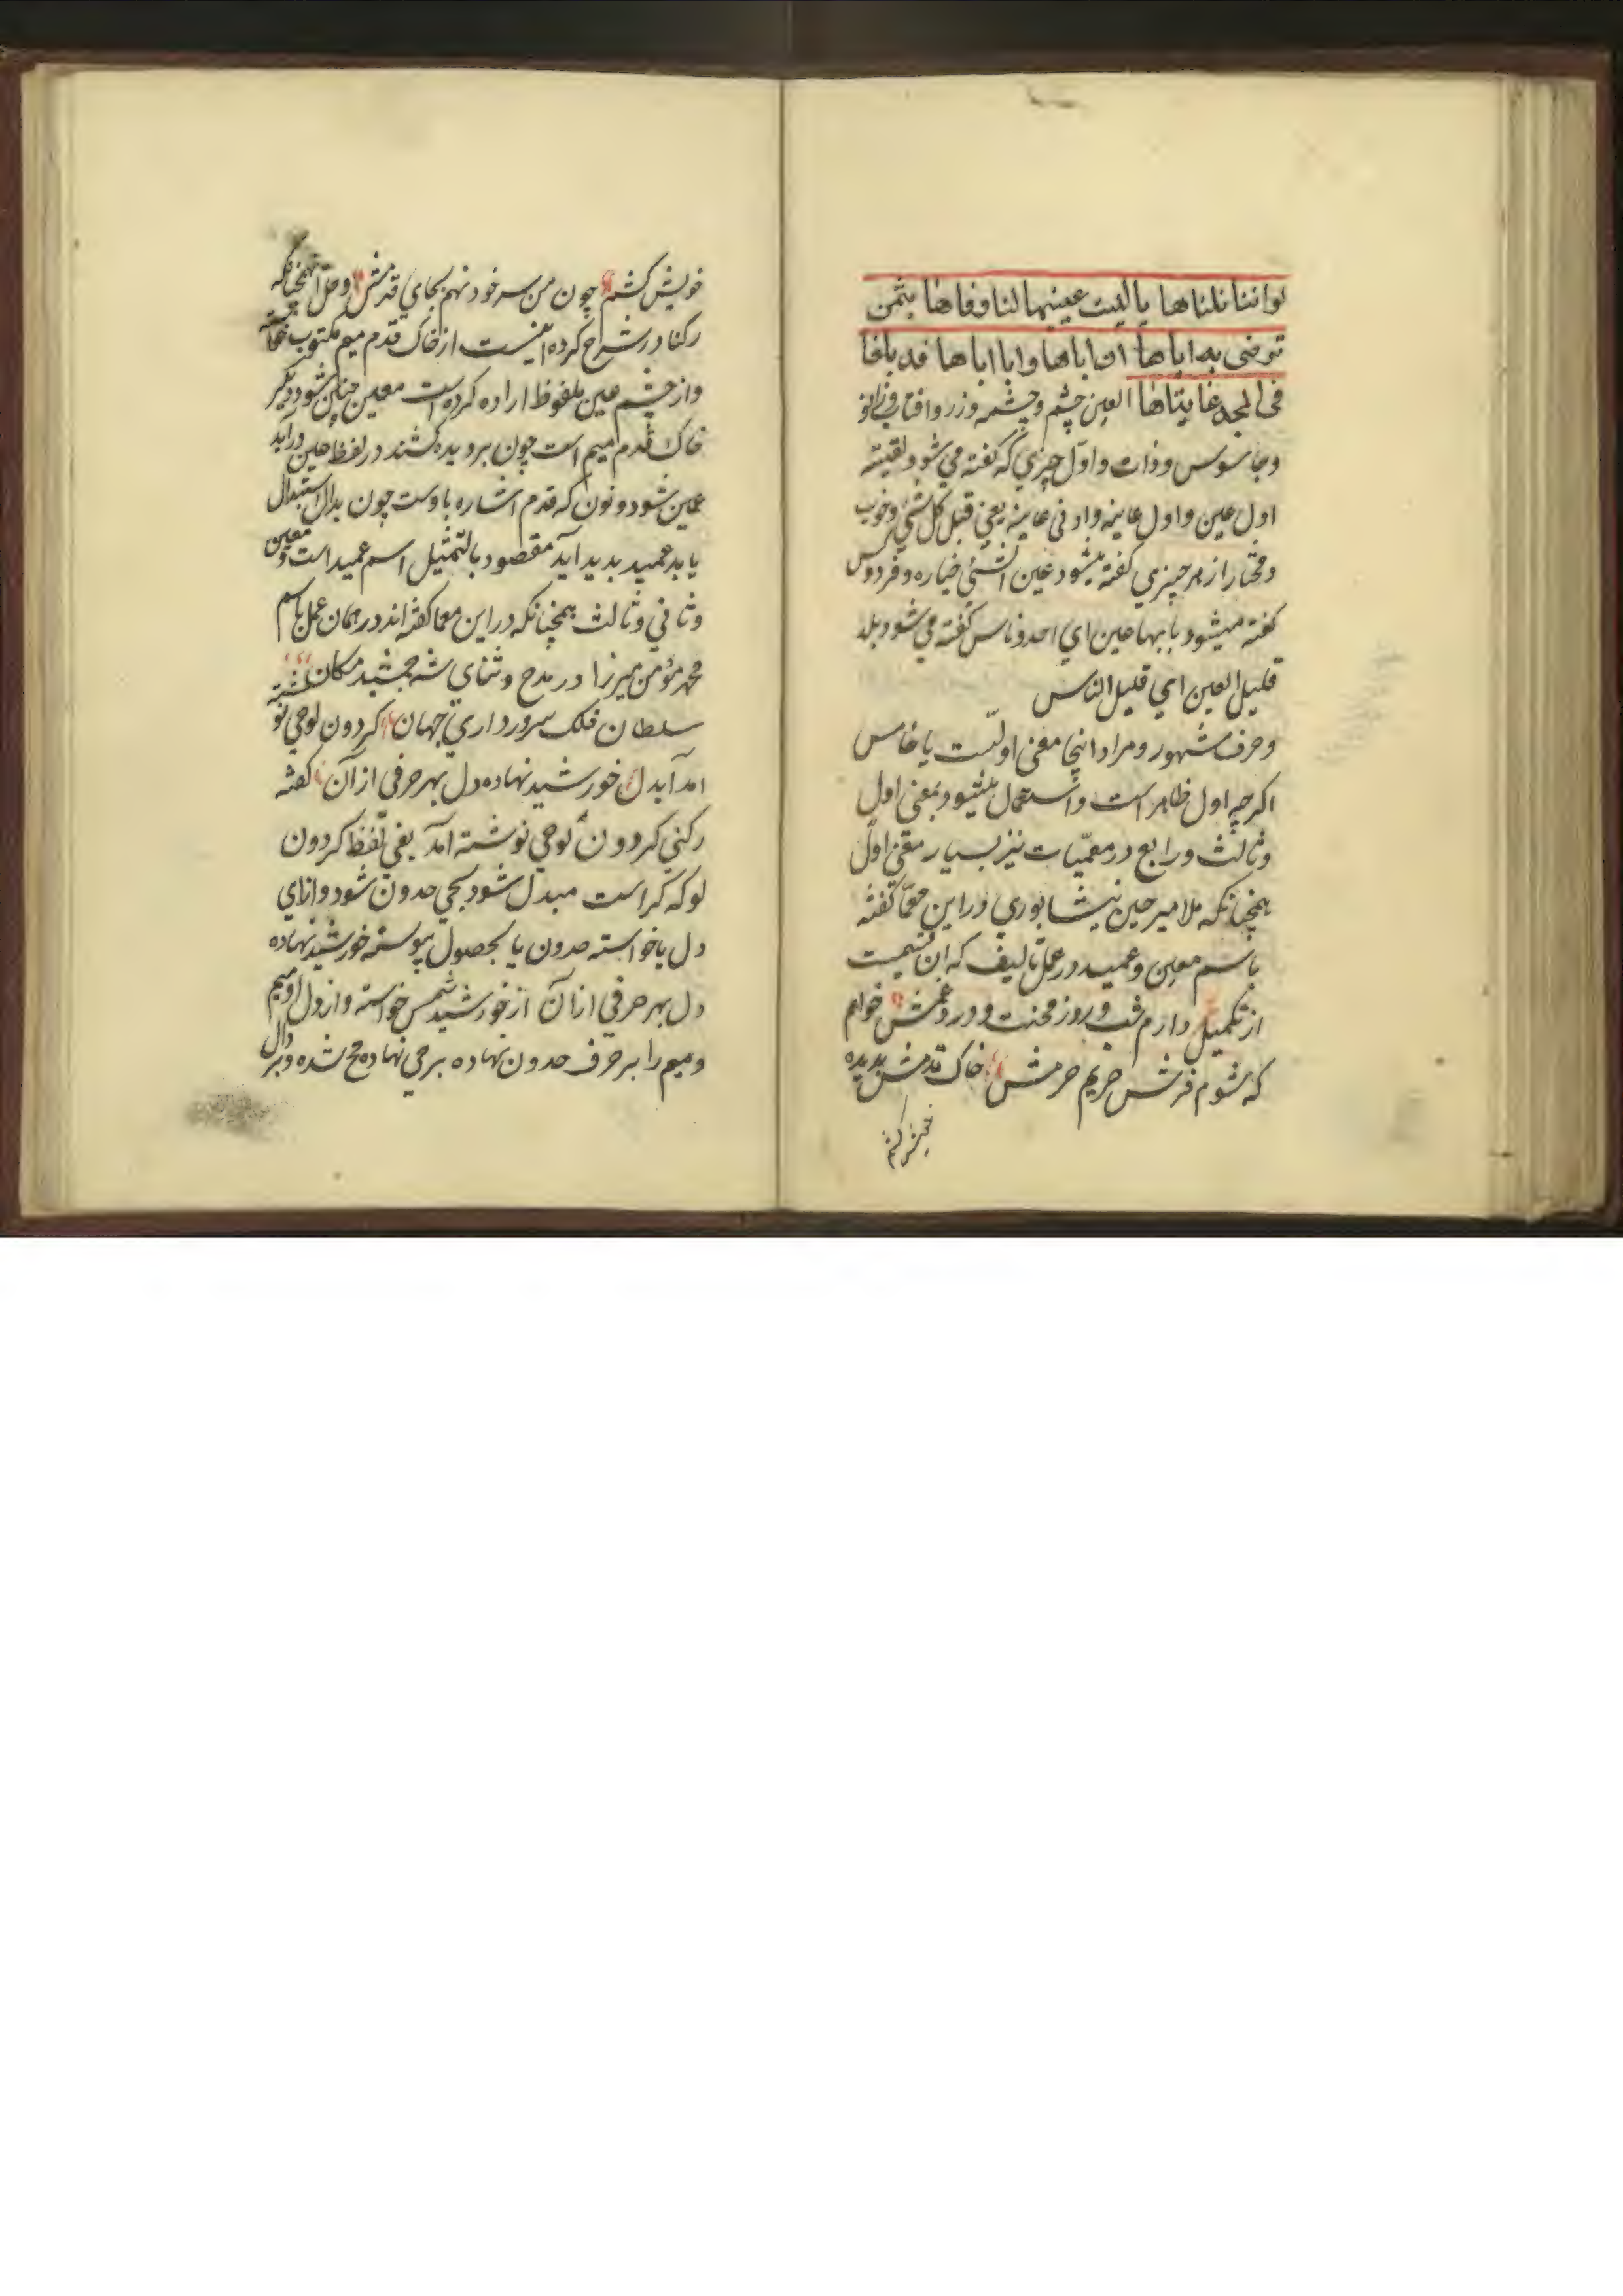 لو اننا نلناها یا لیت عینیها لنا وفاها بثمن
نرضی به اباها ان اباها وابا اباها قد بلغا
فی المجد غایتاها العین چشم وچشمه وزر وافتاب وزانو
وجاسوس وذات واول چیزی که کفته می شود لقیته
اول عین واول عاینه وادنی عاینه یعنی قبل کل شئ وخوب
ومختار از هر چیزی کفته میشود عین الشئ خیاره وفردوس
کفته میشود ما بها عین ای احد وناس کفته می شود بلد
قلیل العین ای قلیل الناس
وحرف مشهور ومراد اینجا معنی اولست یا خامس
اکرچه اول ظاهر است واستعمال میشود بمعنی اول
وثالث ورابع در معمیات نیز بسیار معنی اول
همچنانکه ملا میر حین نیشابوری در این معما کفته
باسم معین وعمید در عمل تالیف که ان قسمیست
از تکمیل دارم شب وروز محنت ودرد وغمش خواهم
که شوم فرش حریم حرمش خاک قدمش بدیده
خویش کشم
خویش کشم چون من سر خود نهم بجای قدمش وحل همچنانکه
رکنا در شرح کرده اینست از خاک قدم میم مکتوب خواسته
واز چشم عین ملفوظ اراده کرده است معین چنین شود دیگر
خاک قدم میم است چون بر دیده کشند در لفظ عین در اید
عمین شود ونون که قدم اشاره باوست چون بدال استبدال
یابد عمید بدید آید مقصود بالتمثیل اسم عمید است ومعین
وثانی وثالث همچنانکه در این معما کفته اند در همان عمل باسم
محمد مؤمن میرزا در مدح وثنای شه جمشید مکان
سلطان فلک سرور داری جهان کردون لوحی نو
امد آید دل خورشید نهاده دل بهر حرفی از آن کفته
رکنی کردون لوحی نوشته آمد یعنی تلفظ کردون
لو که کر است مبدل شود بحی حدون شود وازای
دل یا خواسته حدون یا بحصول پیوسته خورشید نهاده
دل بهر حرفی از آن از خورشید شمس خواسته واز دل او میم
ومیم را بر حرف حدون نهاده بر حی نهاده مح شده وبر دال